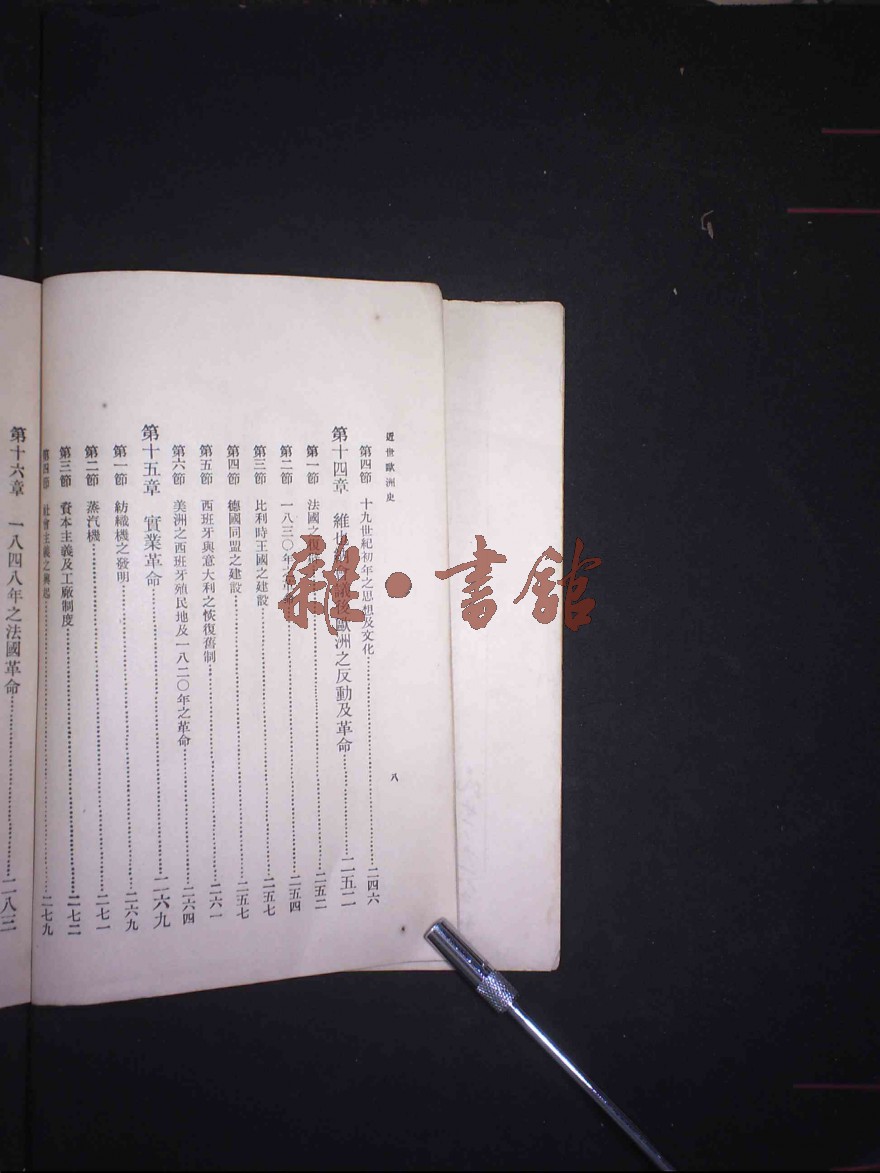 近世歐洲史
八
第四節 十九世紀初年之思想及文化 二四六
第十四章 維也納會議後歐洲之反動及革命 二五二
第一節 法國之復 二五二
第二節 一八三〇年之革命 二五四
第三節 比利時王國之建設 二五七
第四節 德國同盟之建設 二五七
第五節 西班牙與意大利之恢復舊制 二六一
第六節 美洲之西班牙殖民地及一八二〇年之革命 二六四
第十五章 實業革命 二六九
第一節 紡織機之發明 二六九
第二節 蒸汽機 二七一
第三節 資本主義及工廠制度 二七二
第四節 社會主義之興起 二七九
第十六章 一八四八年之法國革命 二八三
雜·書館